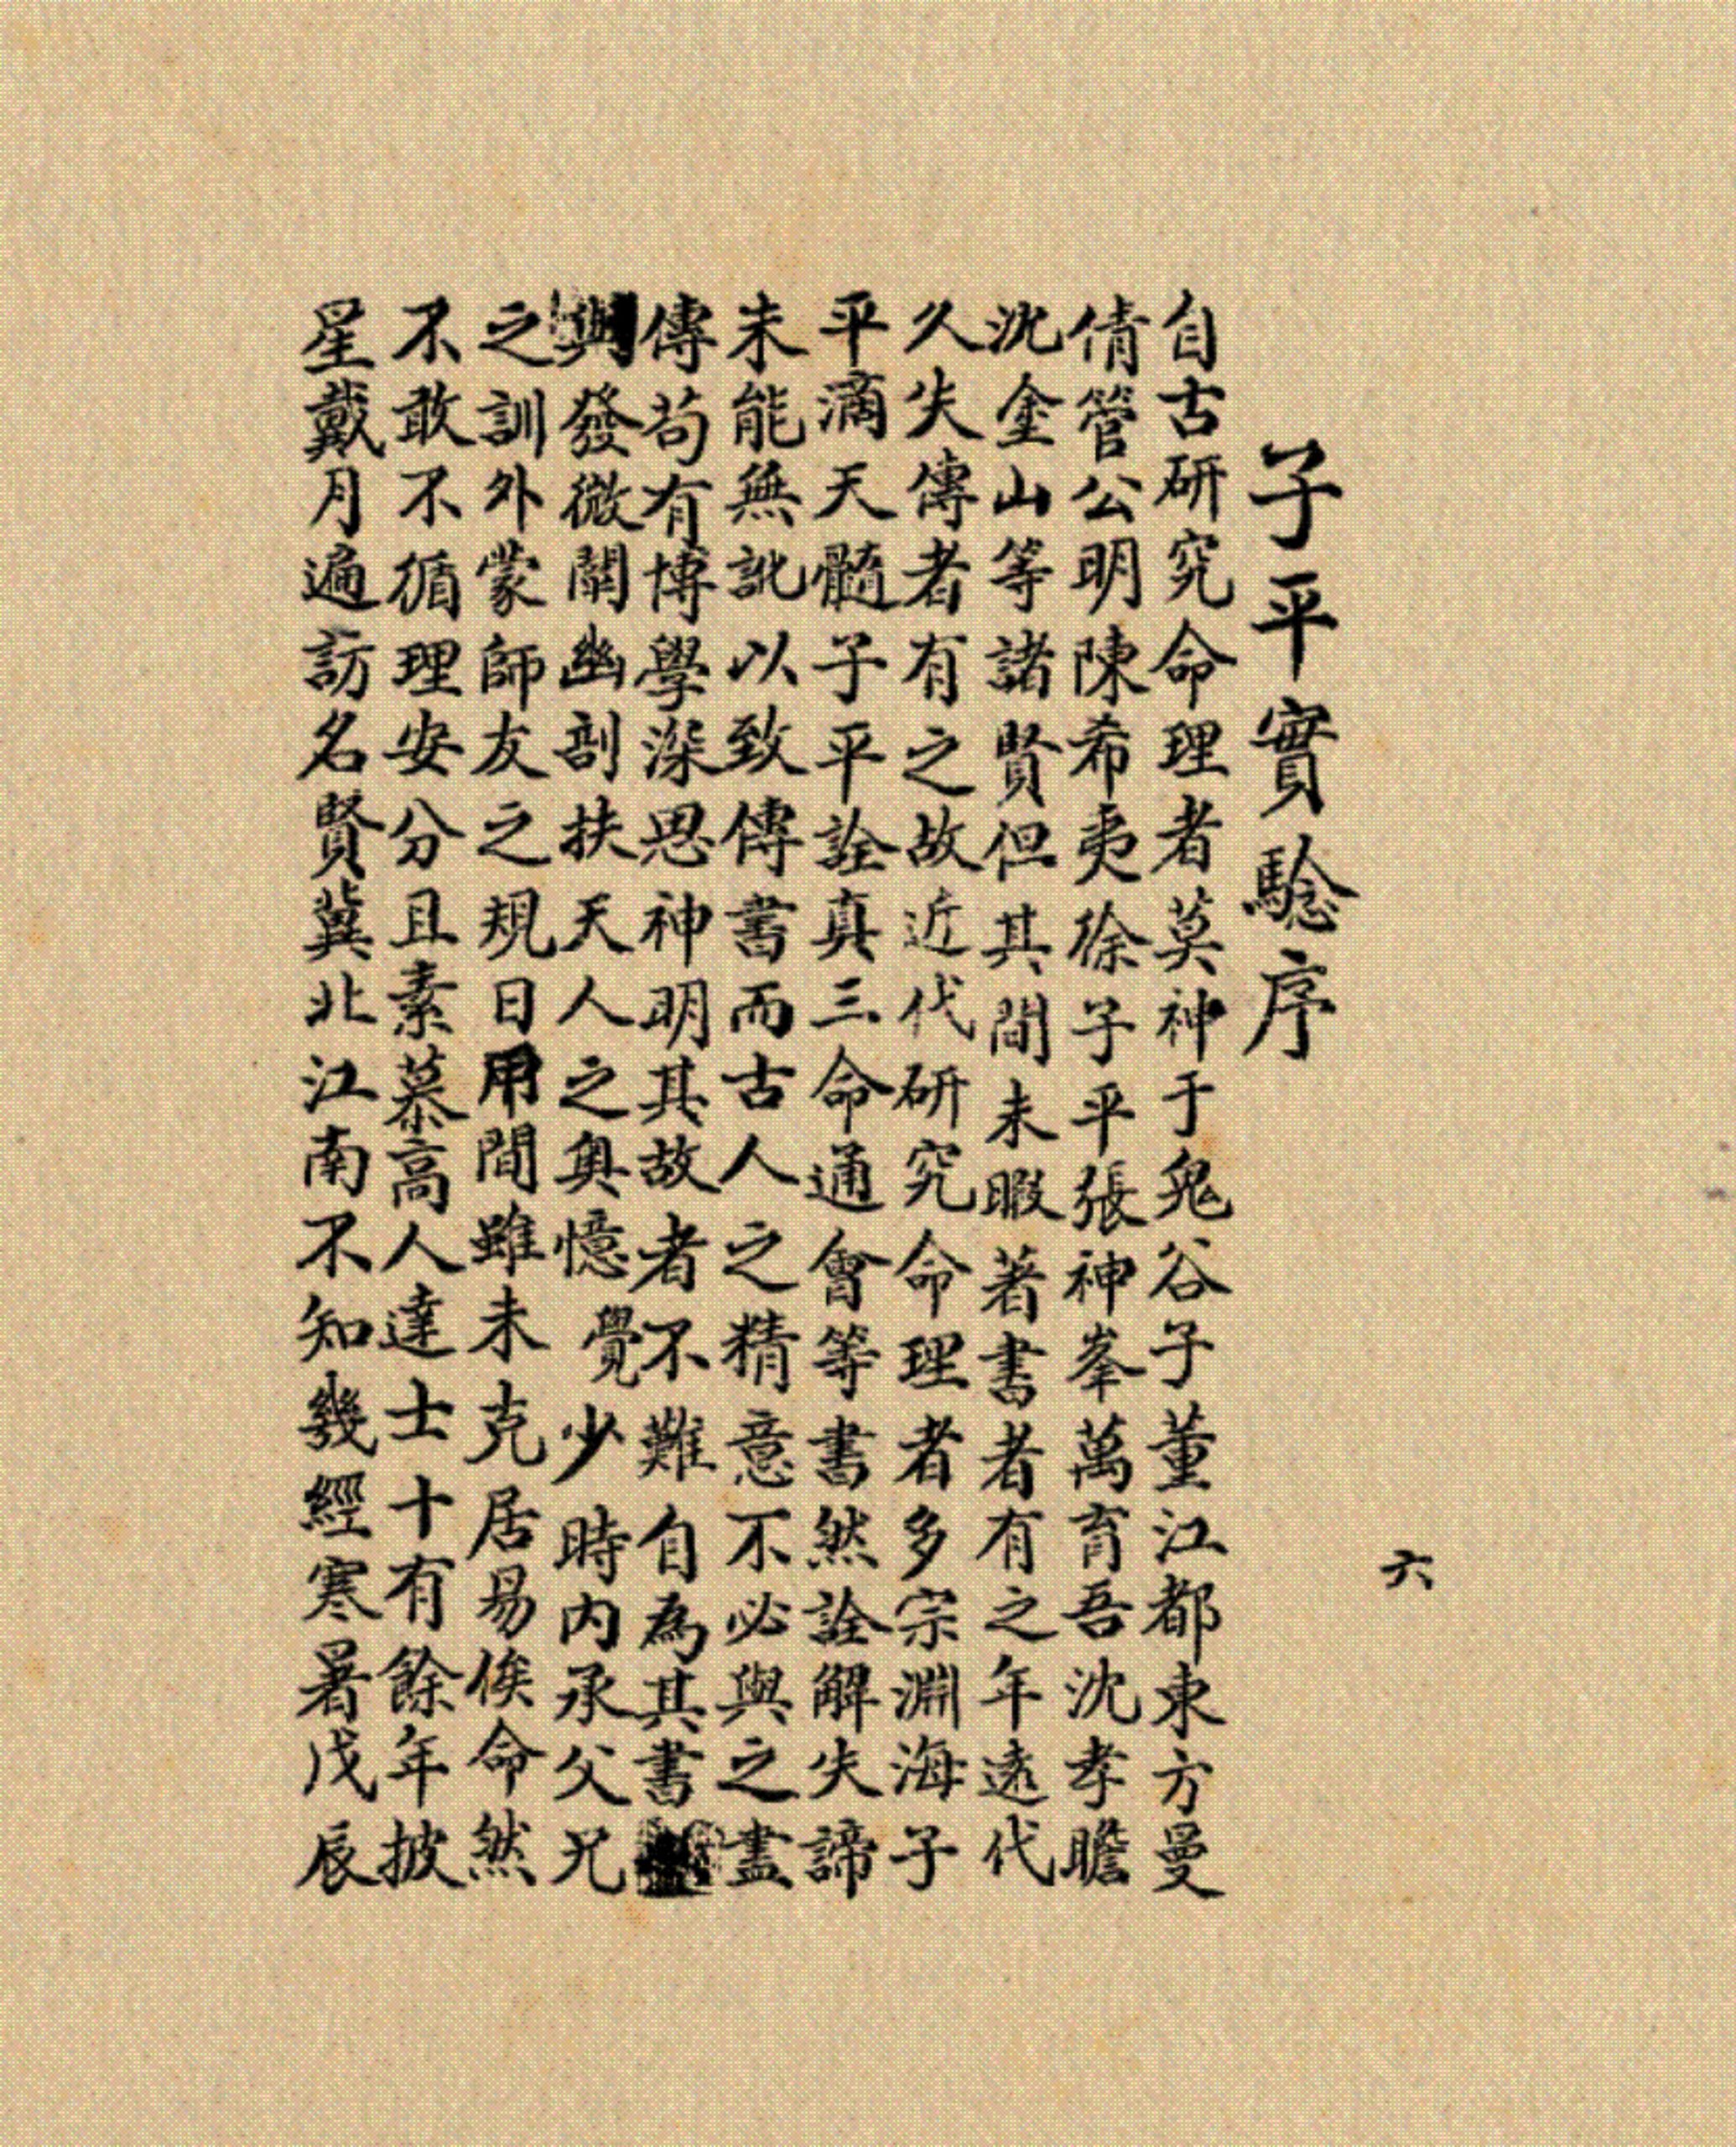 六
子平實驗序
自古研究命理者莫神于鬼谷子董江都東方曼
倩管公明陳希夷徐子平張神峯萬育吾沈孝瞻
沈金山等諸賢但其間未暇著書者有之年遠代
久失傳者有之故近代研究命理者多宗淵海子
平滴天髓子平詮真三命通會等書然詮解失諦
未能無訛以致傳書而古人之精意不必與之盡
傳苟有博學深思神明其故者不難自為其書
與發微闡幽剖抉天人之奧憶覺少時內承父兄
之訓外蒙師友之規日用間雖未克居易俟命然
不敢不循理安分且素慕高人達士十有餘年披
星戴月遍訪名賢冀北江南不知幾經寒暑戊辰